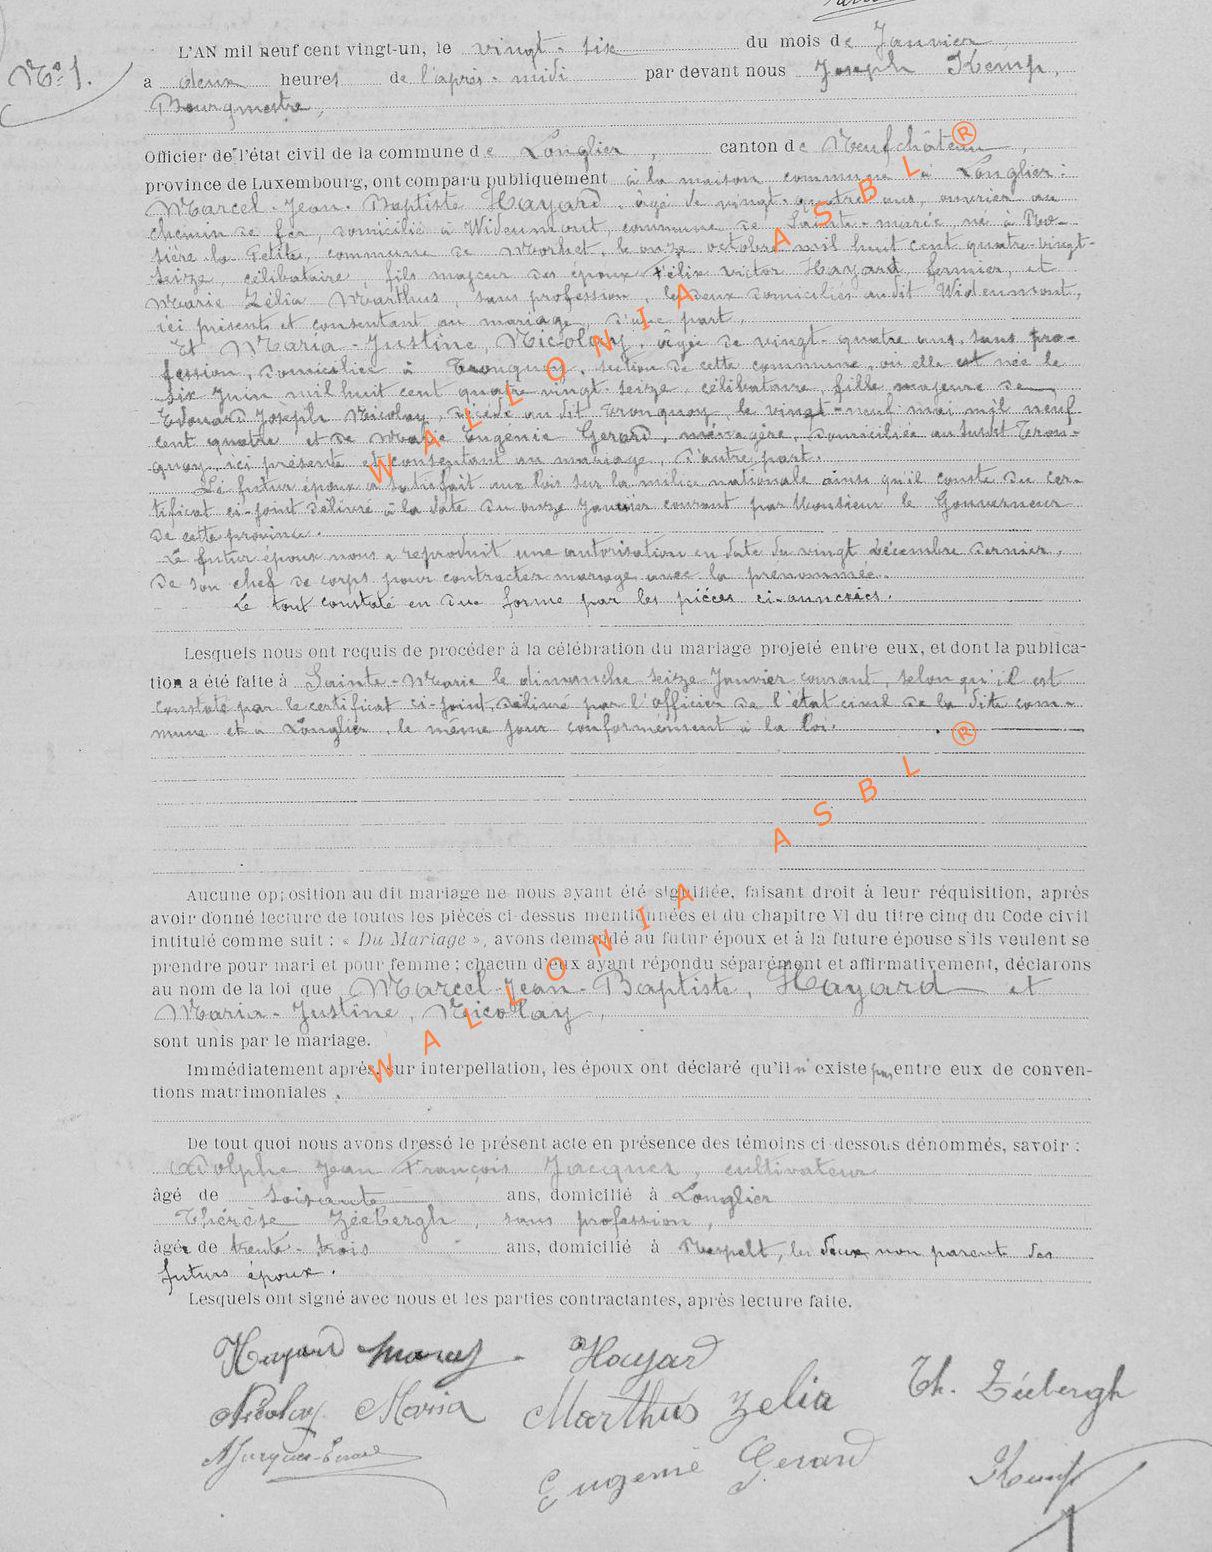 L'AN mil neuf cent vingt-un, le vingt-six du mois de Janvier
N° 1.
a deux heures de l'après-midi par devant nous Joseph Kemp,
Bourgmestre,
Officier de l'état civil de la commune de Longlier, canton de Neufchâteau,
province de Luxembourg, ont comparu publiquement à la maison commune à Longlier :
Marcel-Jean-Baptiste Hayard, âgé de vingt-quatre ans, ouvrier au
chemin de fer, domicilié à Wideumont, commune de Sainte-marie, né à Ro-
sière la Petite, commune de Morhet, le onze octobre mil huit cent quatre-vingt-
seize, célibataire, fils majeur des époux Félix Victor Hayard, fermier, et
Marie Zélia Marthus, sans profession, les deux domiciliés audit Wideumont,
ici présents et consentant au mariage, d'une part,
Et Maria-Justine, Nicolay, âgée de vingt-quatre ans, sans pro-
fession, domiciliée à Tronquoy, section de cette commune, où elle est née le
six Juin mil huit cent quatre vingt-seize, célibataire, fille majeure de
Edouard Joseph Nicolay, décédé audit Tronquoy le vingt-neuf mai mil neuf
cent quatre et de Marie Eugénie Gerard, ménagère, domiciliée au susdit Tron-
quoy, ici présente et consentant au mariage, d'autre part.
Le futur époux a satisfait aux lois sur la milice nationale ainsi qu'il conste du cer-
tificat ci-joint délivré à la date du onze Janvier courant par Monsieur le Gouverneur
de cette province.
Le futur époux nous a reproduit une autorisation en date du vingt décembre dernier,
de son chef de corps pour contracter mariage avec la prénommée.
Le tout constaté en due forme par les pièces ci-annexées.
Lesquels nous ont requis de procéder à la célébration du mariage projeté entre eux, et dont la publica-
tion a été faite à Sainte-Marie le dimanche seize Janvier courant, selon qu'il est
constaté par le certificat ci-joint, délivré par l'officier de l'état civil de la dite com-
mune et à Longlier, le même jour conformément à la loi.
Aucune opposition au dit mariage ne nous ayant été signifiée, faisant droit à leur réquisition, après
avoir donné lecture de toutes les pièces ci-dessus mentionnées et du chapitre VI du titre cinq du Code civil
intitulé comme suit : « Du Mariage », avons demandé au futur époux et à la future épouse s'ils veulent se
prendre pour mari et pour femme ; chacun d'eux ayant répondu séparément et affirmativement, déclarons
au nom de la loi que Marcel-Jean-Baptiste, Hayard et
Maria-Justine, Nicolay,
sont unis par le mariage.
Immédiatement après, sur interpellation, les époux ont déclaré qu'il n'existe pas entre eux de conven-
tions matrimoniales.
De tout quoi nous avons dressé le présent acte en présence des témoins ci-dessous dénommés, savoir :
Adolphe Jean François Jacques, cultivateur
âgé de soixante ans, domicilié à Longlier
Thérèse Zéebergh, sans profession,
âgée de trente-trois ans, domicilié à Respelt, les deux non parents des
futurs époux.
Lesquels ont signé avec nous et les parties contractantes, après lecture faite.
Hayard Marcel Hayard
Nicolay Maria Marthus Zelia Th. Zéebergh
Eugenie Gerard Kemp
WALLONIA ASBL ®
WALLONIA ASBL ®